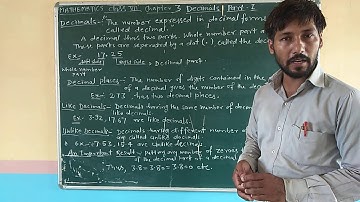 MATHEMATICS Class VII, Chapter 3 Decimals Part-I
Decimals:- The number expressed in decimal forms
called decimal.
A decimal has two parts. Whole number part a
These parts are seperated by a dot (.) called the dec
Ex- 17.25
left side right side → Decimal part.
Whole number
part
Decimal places:- The number of digits contained in the
of a decimal gives the number of the dec
Ex- 2.13 has two decimal places.
Like Decimals:- Decimals having the same number of decim
Ex- 3.92, 17.67 are like decimals.
Unlike Decimals- Decimals having different number o
are called unlike decimals.
Ex- 7.53, 15.4 are unlike decimals
An Important Result- Putting any number of zeroes
of the decimal part of a decimal
Thus, 3.8 = 3.80 = 3.800 etc.